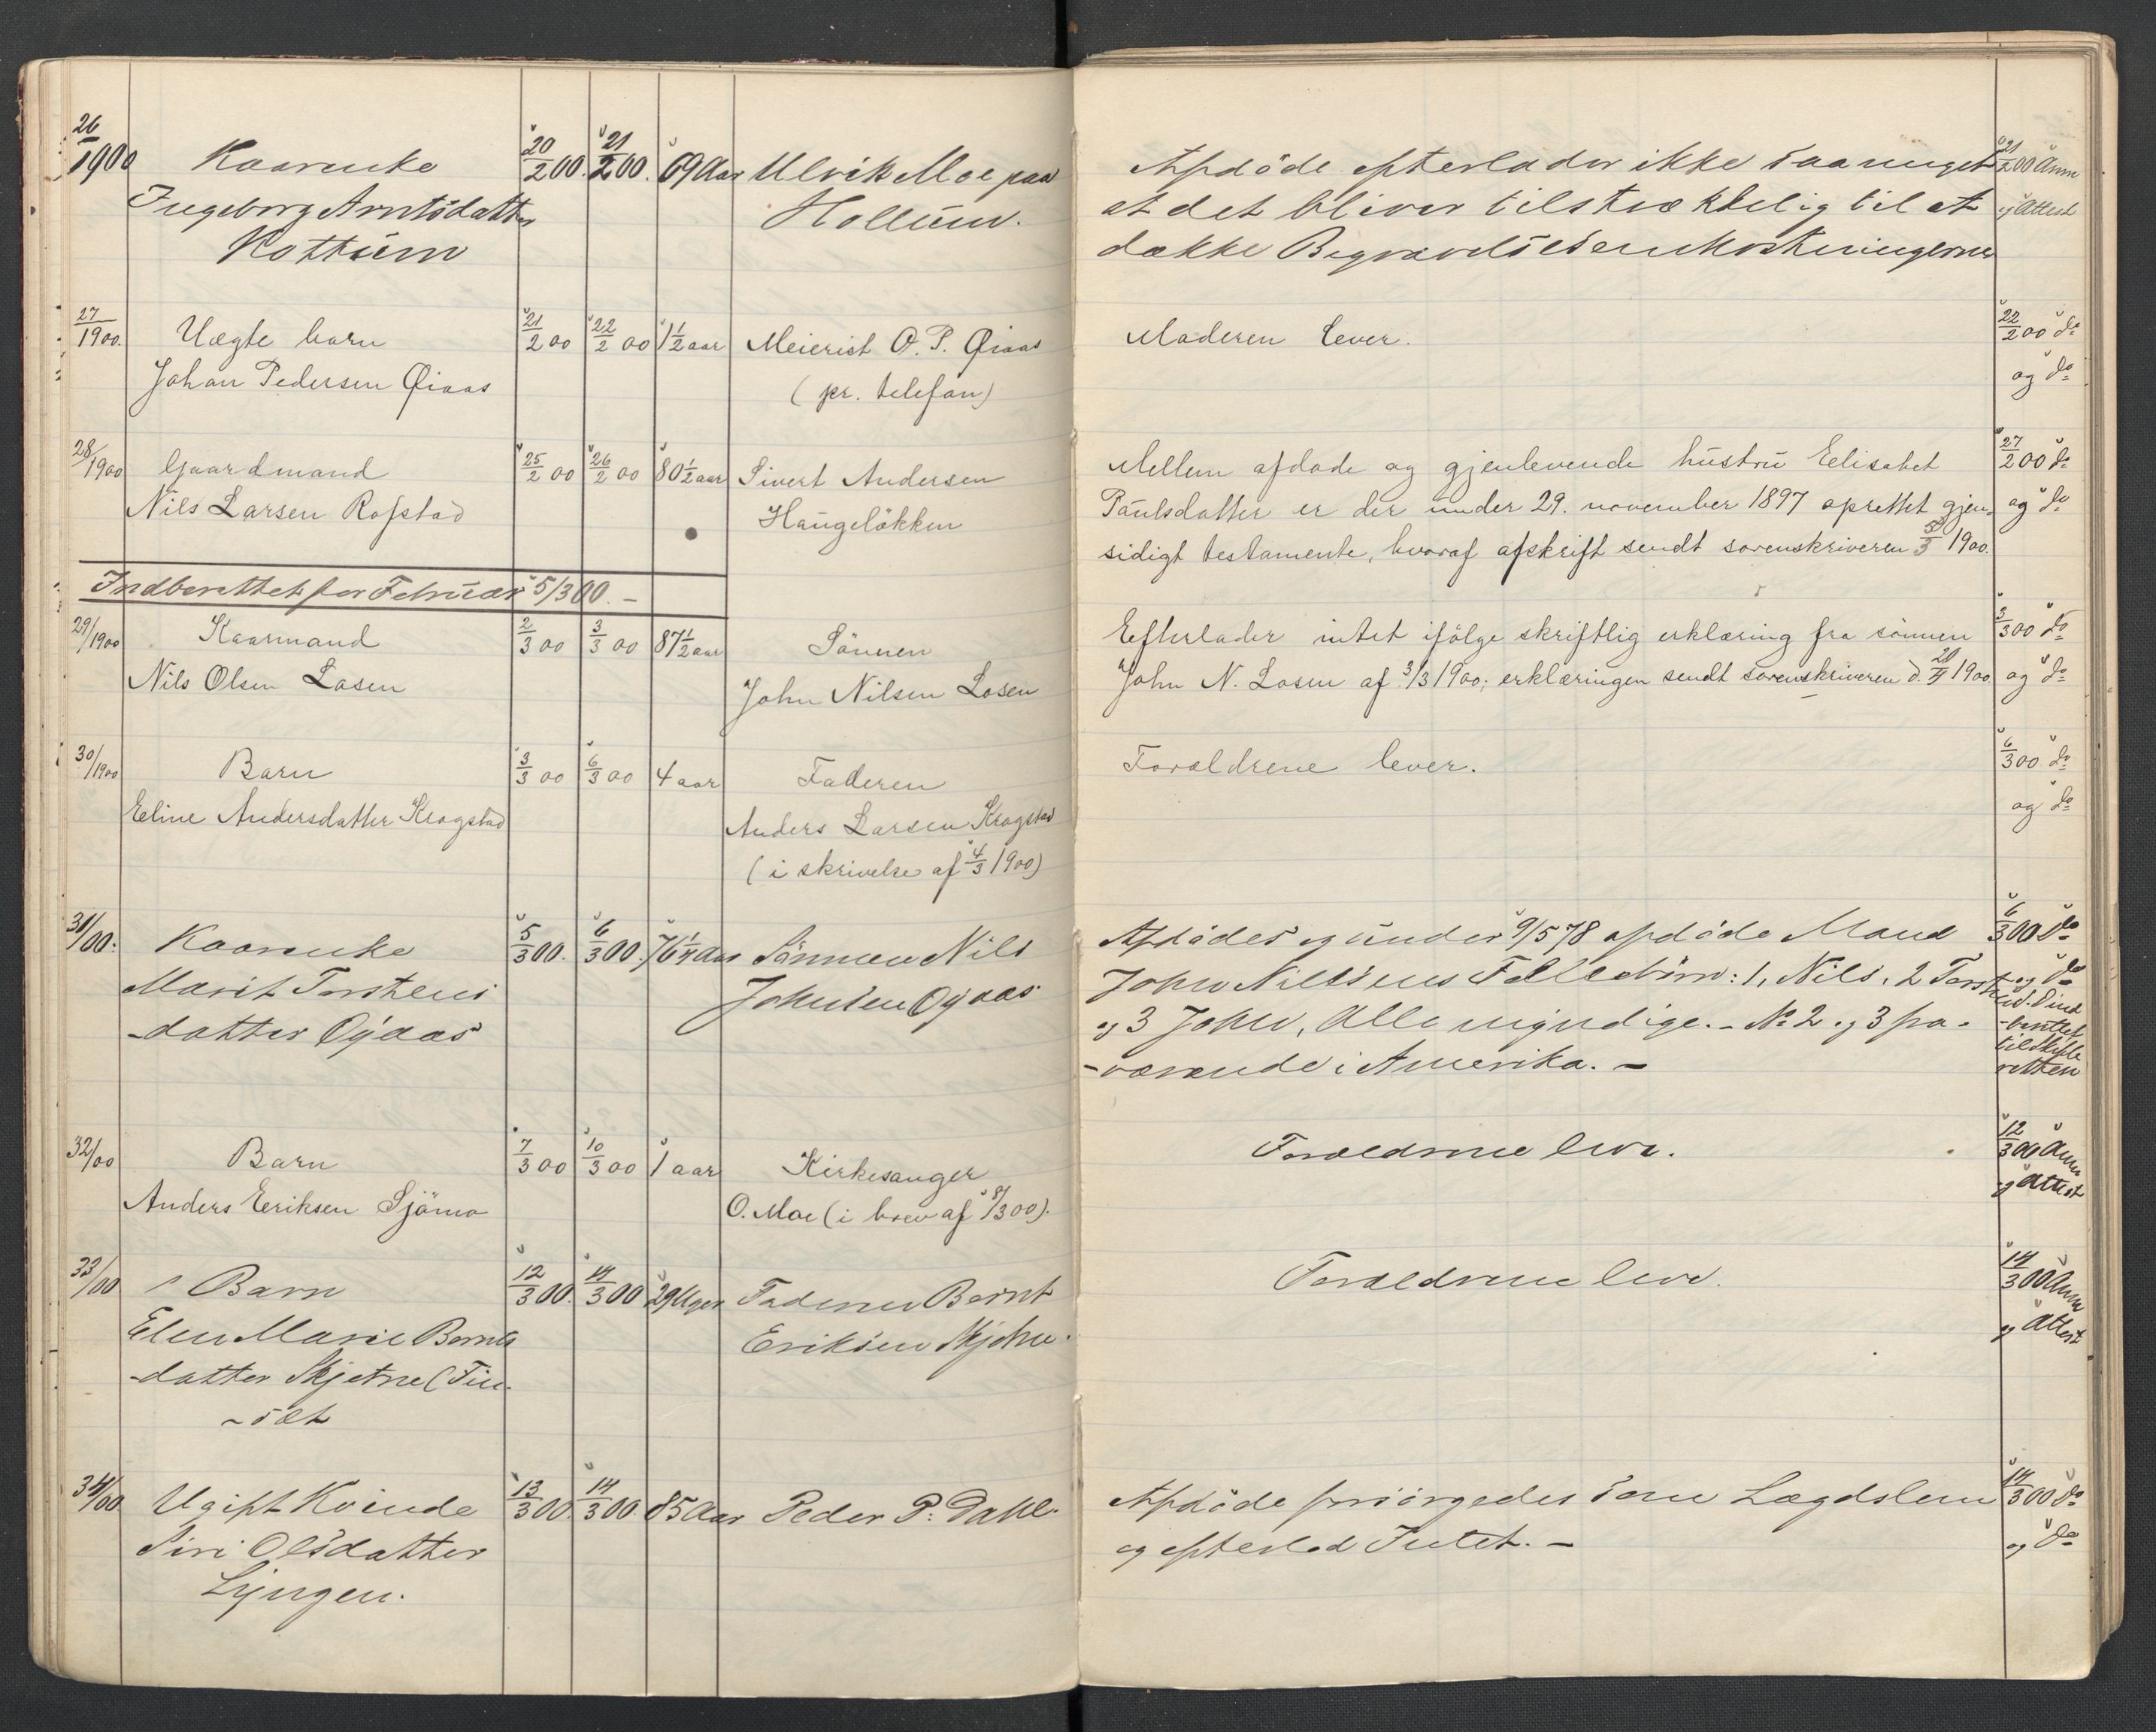 26/1900 Kaarenke 20/2 00. 21/2 00. 69 Aar Ulrik Moe paa
Ingeborg Arntsdatter Hollum.
Kottum
Afdøde efterlader ikke saa meget 21/2 00 Anm
at det bliver tilstrækkelig til at og Attest
dække Begravelsesomkostningerne
27/1900. Uægte barn 21/2 00 22/2 00 1 1/2 aar Meierist O. P. Øiaas
Johan Pedersen Øiaas (pr. telefon)
Moderen lever. 22/2 00 do
og do
28/1900 Gaardmand 25/2 00 26/2 00 80 1/2 aar Sivert Andersen
Nils Larsen Rofstad Haugeløkken
Mellem afdøde og gjenlevende hustru Eelisabet 27/2 00 do
Paulsdatter er der under 29. november 1897 oprettet gjen- og do
sidigt testamente, hvoraf afskrift sendt sorenskriveren 5/3 1900.
Indberettet for Februar 5/3 00. –
29/1900 Kaarmand 2/3 00 3/3 00 87 1/2 aar Sønnen
Nils Olsen Losen John Nilsen Losen
Eefterlader intet ifølge skriftlig erklæring fra sønnen 3/3 00 do
John N. Losen af 3/3 1900; erklæringen sendt sorenskriveren d. 20/4 1900 og do
30/1900 Barn 3/3 00 6/3 00 4 aar Faderen
Eeline Andersdatter Krogstad Anders Larsen Krogstad
(i skrivelse af 4/3 1900)
Forældrene lever. 6/3 00 do
og do
31/00. Kaarenke 5/3 00. 6/3 00. 76 1/4 Aar Sønnen Nils
Marit Torstens Johnsen Øyaas
-datter Øyaas
Afdødes og under 9/5 78 afdøde Mand 6/3 00 do
John Nilsens Fællesbørn: 1, Nils, 2 Torstein og do
og 3 John, Alle myndige. – No 2 og 3 fra-
-værende i Amerika. –
indberettet
til Skifte
retten
32/00 Barn 7/3 00 10/3 00 1 aar Kirkesanger
Anders Eeriksen Sjømo O. Moe (i brev af 8/3 00).
Forældrene leve. 12/3 00 Anm
og Attest
33/00 Barn 12/3 00. 14/3 00 29 Uger Faderen Bernt
Elen Marie Bernts Eriksen Skjetne.
-datter Skjetne (Fin-
-sæt
Forældrene leve. 14/3 00 Anm
og Attest
34/00 Ugift Kvinde 13/3 00. 14/3 00. 85 Aar Peder P. Dahl.
Siri Olsdatter
Lyngen.
Afdøde forsørgedes som Lægdslem 14/3 00 do
og efterlod Intet. – og do